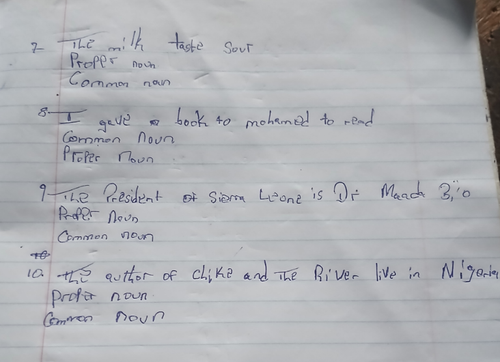 7 The milk taste Sour
Proper noun
Common noun
8 I gave a book to mohamed to read
Common Noun
Proper Noun
9 The President of Sierra Leone is Dr Maada Bio
Proper Noun
Common noun
10 the author of chike and The River live in Nigeria
Proper noun
Common noun